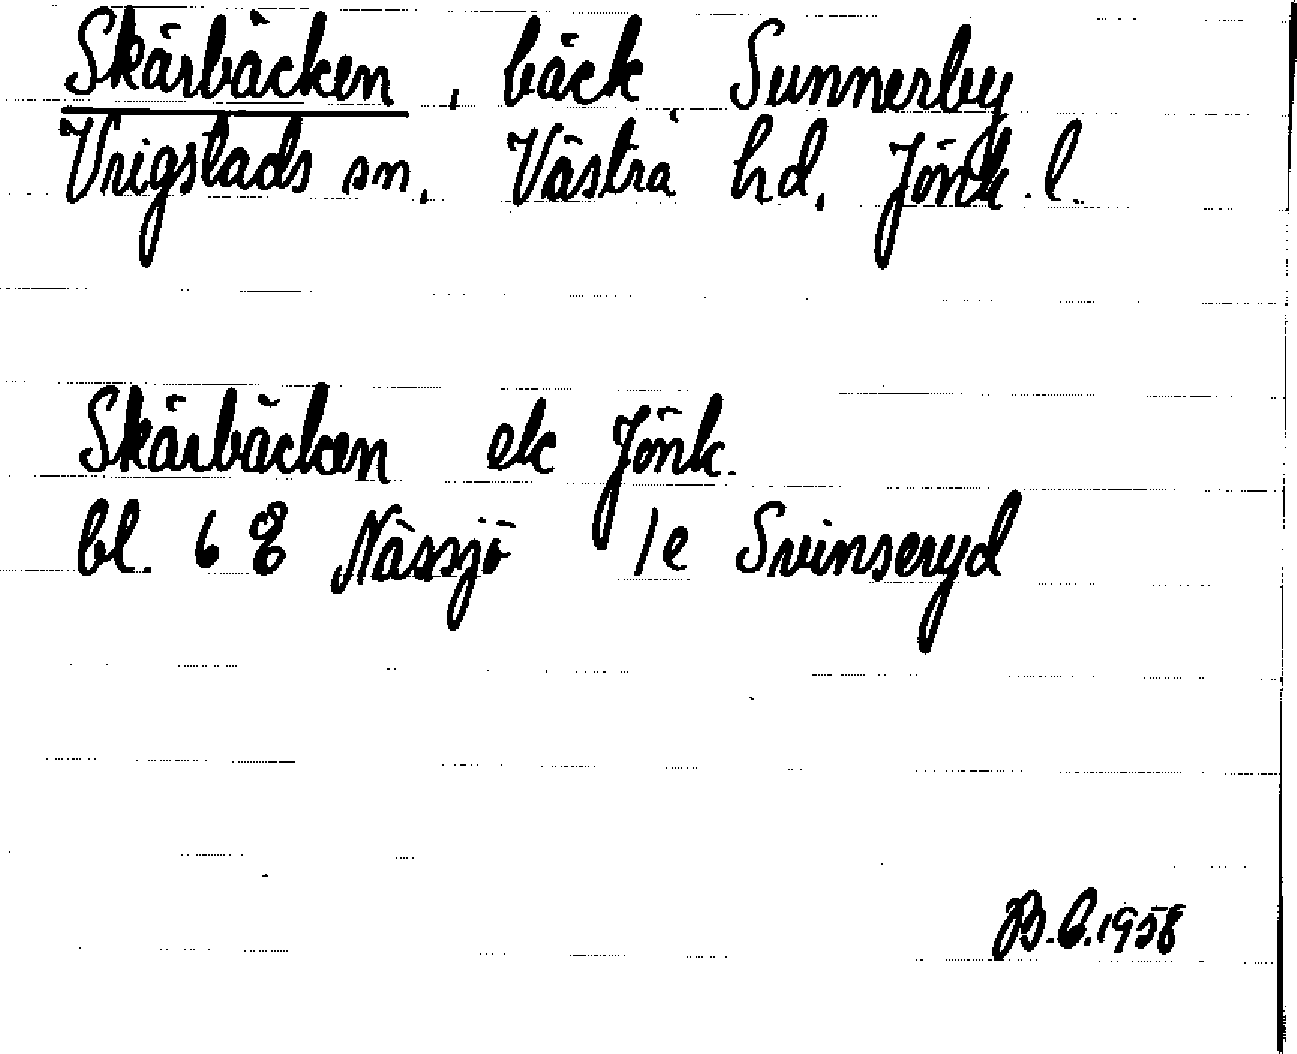 Skärbäcken, bäck, Sunnerby
Vrigstads sn. Västra hd. Jönk. l.
Skärbäcken ek Jönk.
bl. 6 E Nässjö 1e Svinseryd
B.C. 1958